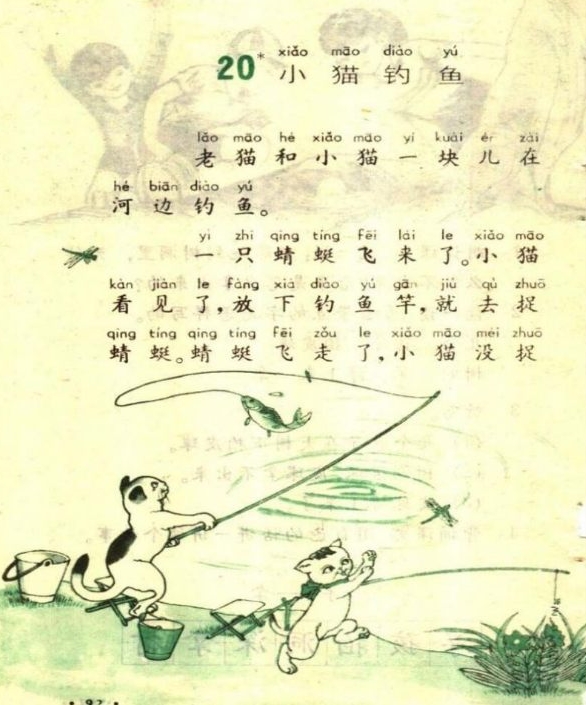 20* xiǎo māo diào yú
小猫钓鱼
lǎo māo hé xiǎo māo yí kuài ér zài
老猫和小猫一块儿在
hé biān diào yú
河边钓鱼。
yì zhī qīng tíng fēi lái le xiǎo māo
一只蜻蜓飞来了。小猫
kàn jiàn le fàng xià diào yú gān jiù qù zhuō
看见了,放下钓鱼竿,就去捉
qīng tíng qīng tíng fēi zǒu le xiǎo māo méi zhuō
蜻蜓。蜻蜓飞走了,小猫没捉
· 92 ·